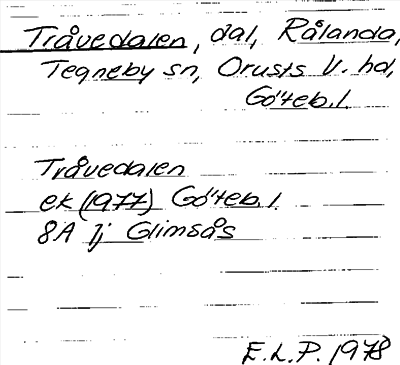 Tråvedalen, dal, Rålanda,
Tegneby sn, Orusts V. hd,
Göteb.l.
Tråvedalen
ek (1977) Göteb.l.
8A 1j Glimsås
E.L.P. 1978